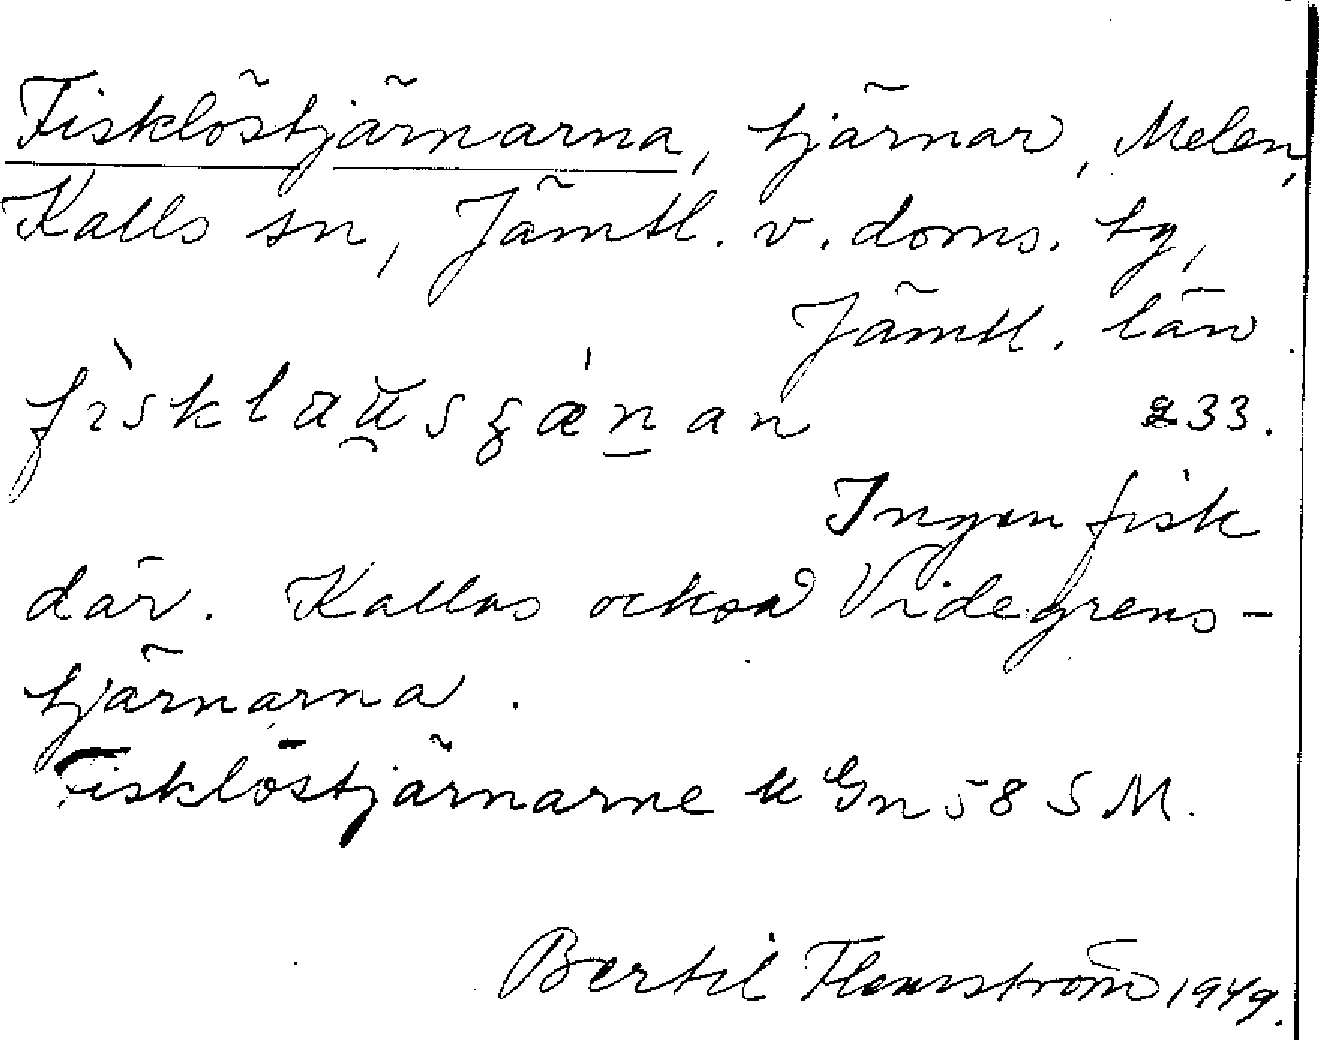 Fisklöstjärnarna, tjärnar, Melen,
Kalls sn, Jämtl. v. doms. tg,
Jämtl. län.
fìsklau̯sʒǽn̲an 233.
Ingen fisk
där. Kallas också Videgrens-
tjärnarna.
Fisklöstjärnarne k Gn 58 S M.
Bertil Flemström 1949.